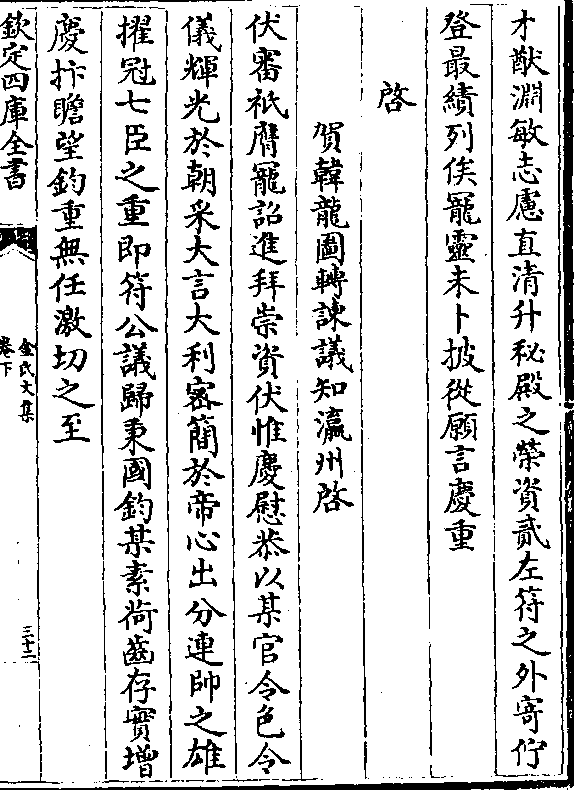 才猷淵敏志慮直清升秘殿之榮資貳左符之外寄佇
登最績列俟寵靈未卜披從願言慶重
啓
賀韓龍圖轉諫議知瀛州啓
伏審祇膺寵詔進拜崇資伏惟慶慰恭以某官令色令
儀輝光於朝采大言大利密簡於帝心出分連帥之雄
擢冠七臣之重即符公議歸秉國鈞某素荷齒存實增
慶抃瞻望鈞重無任激切之至
欽定四庫全書
金氏文集
卷下
三十二